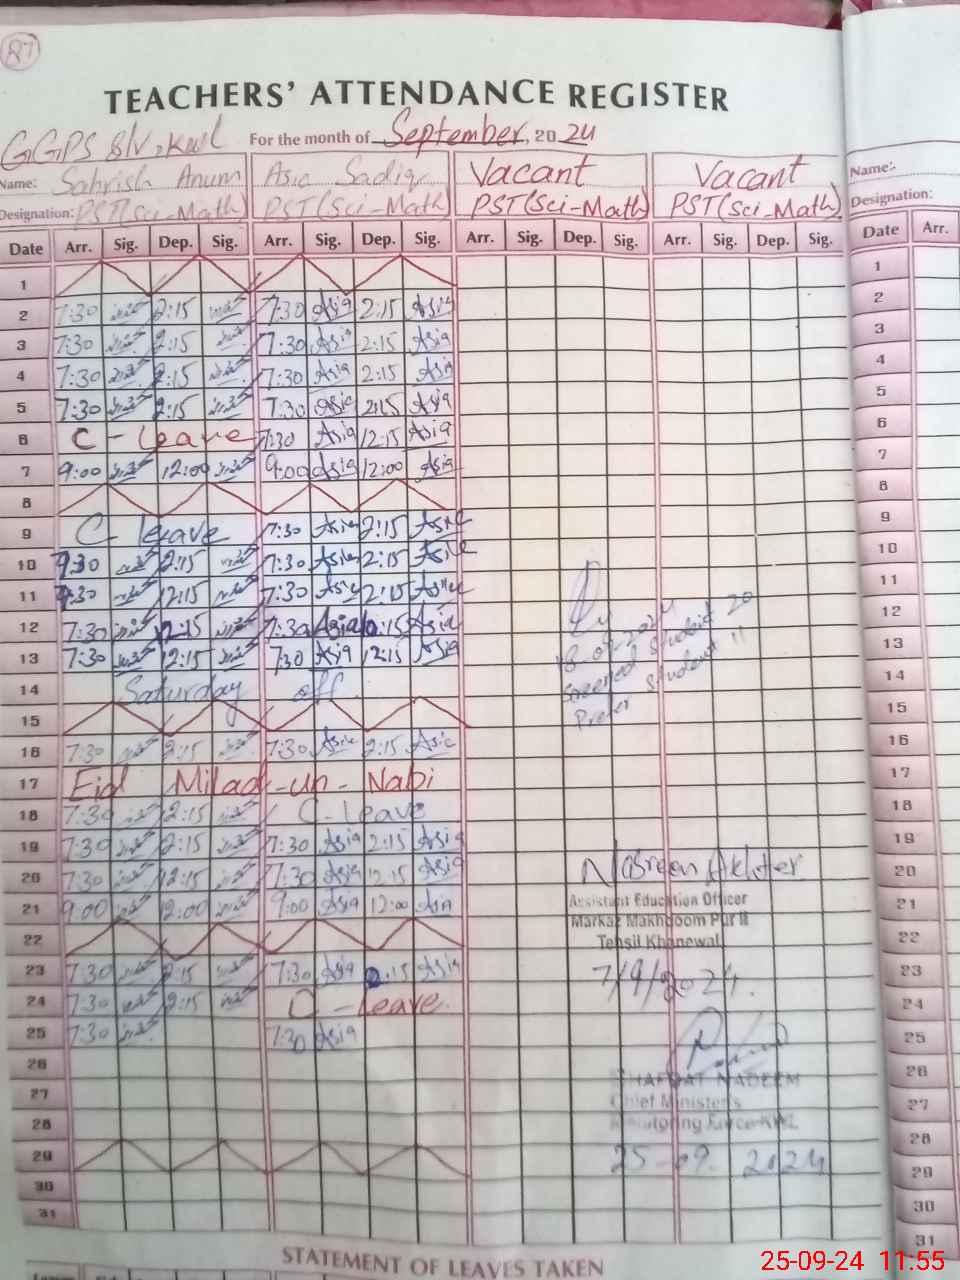 87
TEACHERS' ATTENDANCE REGISTER
GGPS 8/V, Kwl For the month of September, 2024
Name: Sahrish Anum Asia Sadiq Vacant Vacant Name:-
Designation: PST(Sci-Math) PST(Sci-Math) PST(Sci-Math) PST(Sci-Math) Designation:
Date Arr. Sig. Dep. Sig. Arr. Sig. Dep. Sig. Arr. Sig. Dep. Sig. Arr. Sig. Dep. Sig. Date Arr.
1 1
2 7:30 2:15 7:30 Asia 2:15 Asia 2
3 7:30 2:15 7:30 Asia 2:15 Asia 3
4 7:30 2:15 7:30 Asia 2:15 Asia 4
5 7:30 2:15 7:30 Asia 2:15 Asia 5
6 C - leave 7:30 Asia 12:15 Asia 6
7 9:00 12:00 9:00 Asia 12:00 Asia 7
8 8
9 C leave 7:30 Asia 2:15 Asia 9
10 7:30 2:15 7:30 Asia 2:15 Asia 10
11 7:30 12:15 7:30 Asia 2:15 Asia 11
12 7:30 12:15 7:30 Asia 12:15 Asia 12
13 7:30 12:15 7:30 Asia 12:15 Asia 13
14 Saturday off 14
15 15
16 7:30 2:15 7:30 Asia 2:15 Asia 16
17 Eid Milad-un-Nabi 17
18 7:30 2:15 C-leave 18
19 7:30 2:15 7:30 Asia 2:15 Asia 19
20 7:30 12:15 7:30 Asia 12:15 Asia 20
21 9:00 12:00 9:00 Asia 12:00 Asia 21
22 22
23 7:30 2:15 7:30 Asia 2:15 Asia 23
24 7:30 2:15 C - leave 24
25 7:30 7:30 Asia 25
26 26
27 27
28 28
29 29
30 30
31 31
18-09-2024
Student 20
Student 11
Nasreen Akhter
Assistant Education Officer
Markaz Makhdoom Pur II
Tehsil Khanewal
7/9/2024.
SHAFQAT NADEEM
Chief Minister's
Monitoring Force KWL
25-09-2024
STATEMENT OF LEAVES TAKEN
25-09-24 11:55